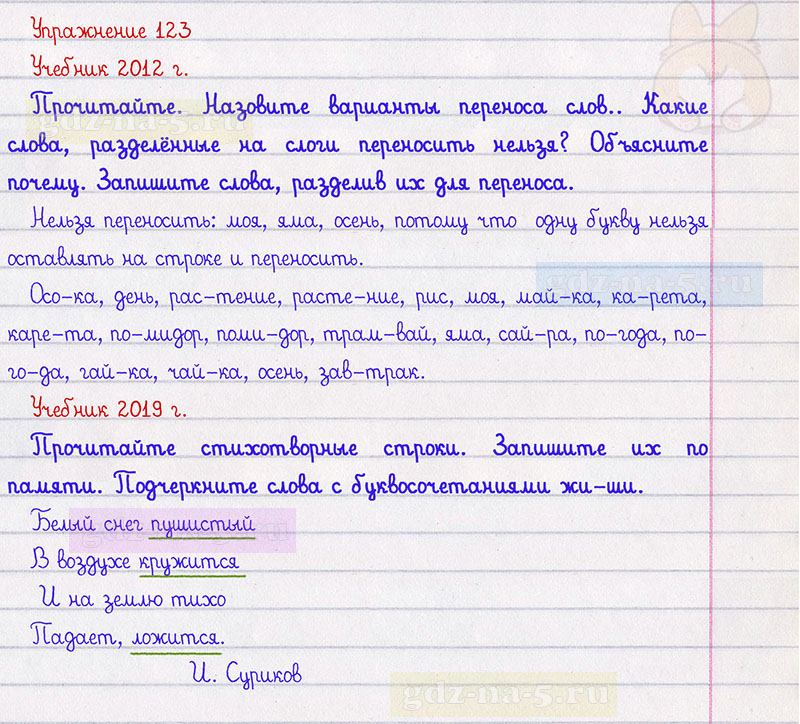 Упражнение 123
Учебник 2012 г.
Прочитайте. Назовите варианты переноса слов.. Какие
слова, разделённые на слоги переносить нельзя? Объясните
почему. Запишите слова, разделив их для переноса.
Нельзя переносить: моя, яма, осень, потому что одну букву нельзя
оставлять на строке и переносить.
Осо-ка, день, рас-тение, расте-ние, рис, моя, май-ка, ка-рета,
каре-та, по-мидор, поми-дор, трам-вай, яма, сай-ра, по-года, по-
го-да, гай-ка, чай-ка, осень, зав-трак.
Учебник 2019 г.
Прочитайте стихотворные строки. Запишите их по
памяти. Подчеркните слова с буквосочетаниями жи-ши.
Белый снег пушистый
В воздухе кружится
И на землю тихо
Падает, ложится.
И. Суриков
gdz-na-5.ru
gdz-na-5.ru
gdz-na-5.ru
gdz-na-5.ru